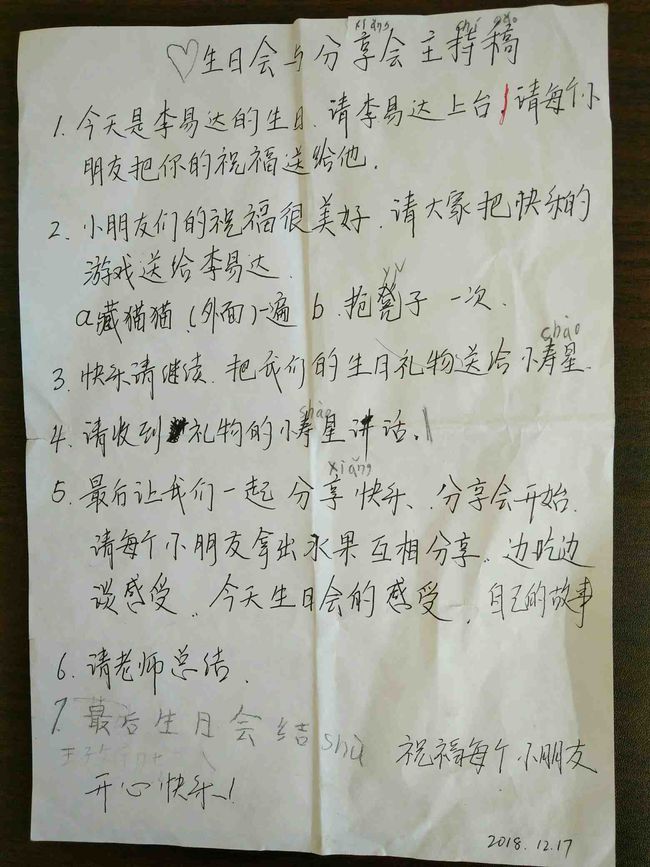 xiǎng chí gǎo
♡生日会与分享会主持稿
1. 今天是李易达的生日.请李易达上台 请每个小
朋友把你的祝福送给他.
2. 小朋友们的祝福很美好.请大家把快乐的
游戏送给李易达.
a藏猫猫.(外面)一遍 b.抢凳子 一次.
shào
3. 快乐请继续.把我们的生日礼物送给小寿星.
shào
4. 请收到礼物的小寿星讲话.
xiǎng
5. 最后让我们一起 分享快乐、分享会开始.
请每个小朋友拿出水果互相分享.边吃边
谈感受..今天生日会的感受.自己的故事
6. 请老师总结.
7. 最后生日会结shù 祝福每个小朋友
开心快乐!
2018.12.17